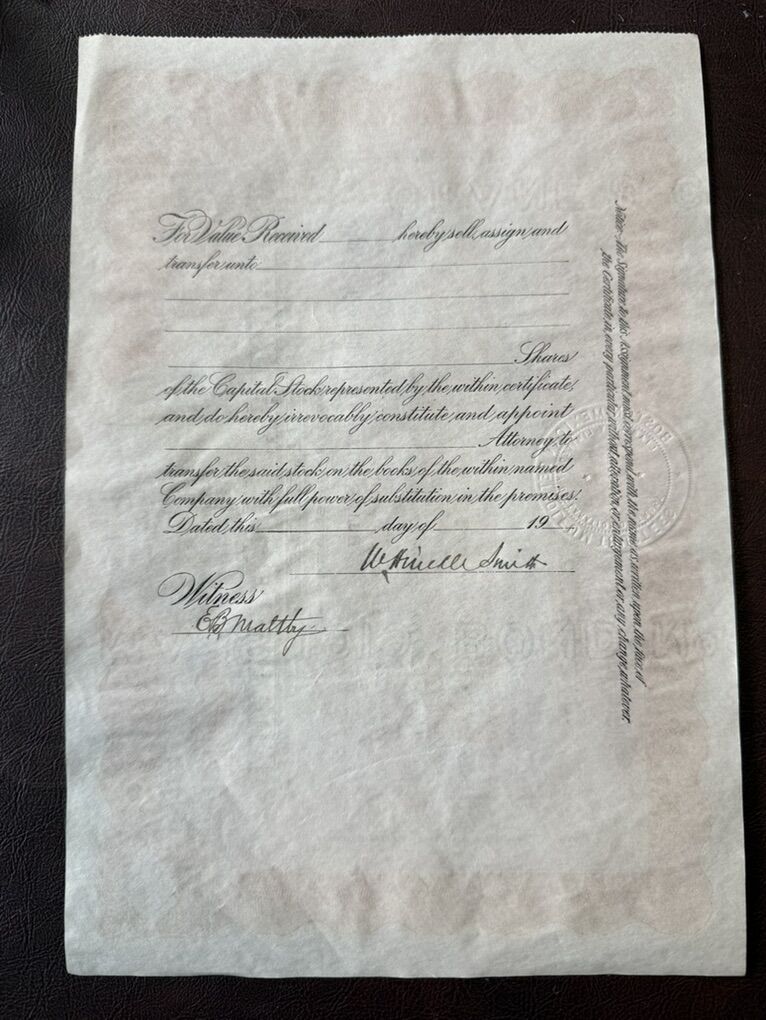 For Value Received ________ hereby sell, assign and
transfer unto
Shares
of the Capital Stock represented by the within certificate
and do hereby irrevocably constitute and appoint
Attorney to
transfer the said stock on the books of the within named
Company with full power of substitution in the premises.
Dated, this ________ day of ________ 19
Smith
Witness
E B Maltby
Notice: The Signature to this Assignment must correspond with the name as written upon the face of
the Certificate, in every particular, without alteration or enlargement or any change whatever.